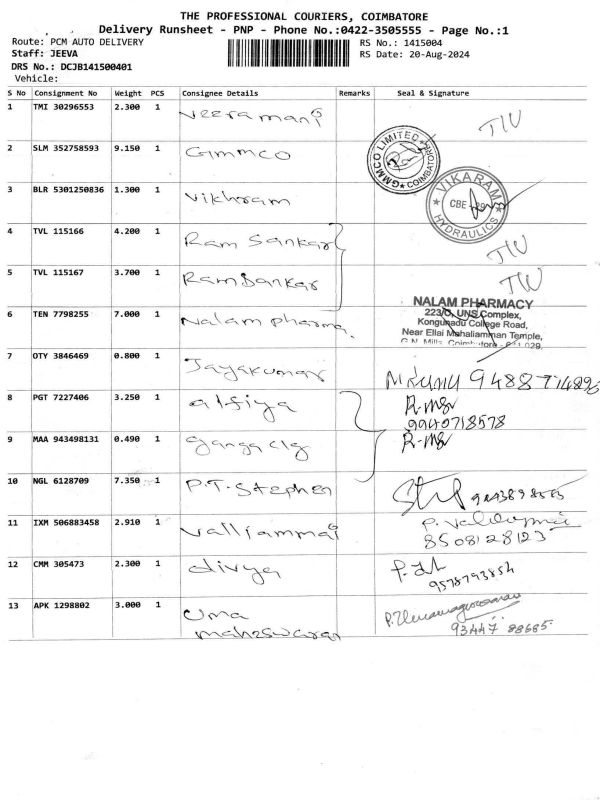 THE PROFESSIONAL COURIERS, COIMBATORE
Delivery Runsheet - PNP - Phone No.:0422-3505555 - Page No.:1
Route: PCM AUTO DELIVERY
RS No.: 1415004
Staff: JEEVA
RS Date: 20-Aug-2024
DRS No.: DCJB141500401
Vehicle:
S No Consignment No Weight PCS Consignee Details Remarks Seal & Signature
1 TMI 30296553 2.300 1 Veeramani TIV
2 SLM 352758593 9.150 1 Gimmco
GMMCO LIMITED COIMBATORE
3 BLR 5301250836 1.300 1 Vikhram
VIKARAM HYDRAULICS
CBE - 29
4 TVL 115166 4.200 1 Ram Sankar TIV
5 TVL 115167 3.700 1 Ram Sankar TIV
6 TEN 7798255 7.000 1 Nalam pharma.
NALAM PHARMACY
223/C, UNS Complex,
Kongunadu College Road,
Near Ellai Mahaliamman Temple,
G.N. Mills, Coimbatore - 641 029.
7 OTY 3846469 0.800 1 Jayakumar
8 PGT 7227406 3.250 1 alfiya R-mgr
9940718578
9 MAA 943498131 0.490 1 ganga clg R-mgr
10 NGL 6128709 7.350 1 P.T. Stephen
11 IXM 506883458 2.910 1 valliammai
8508128123
12 CMM 305473 2.300 1 divya
9578793854
13 APK 1298802 3.000 1 Uma
maheswaran
93447 88685